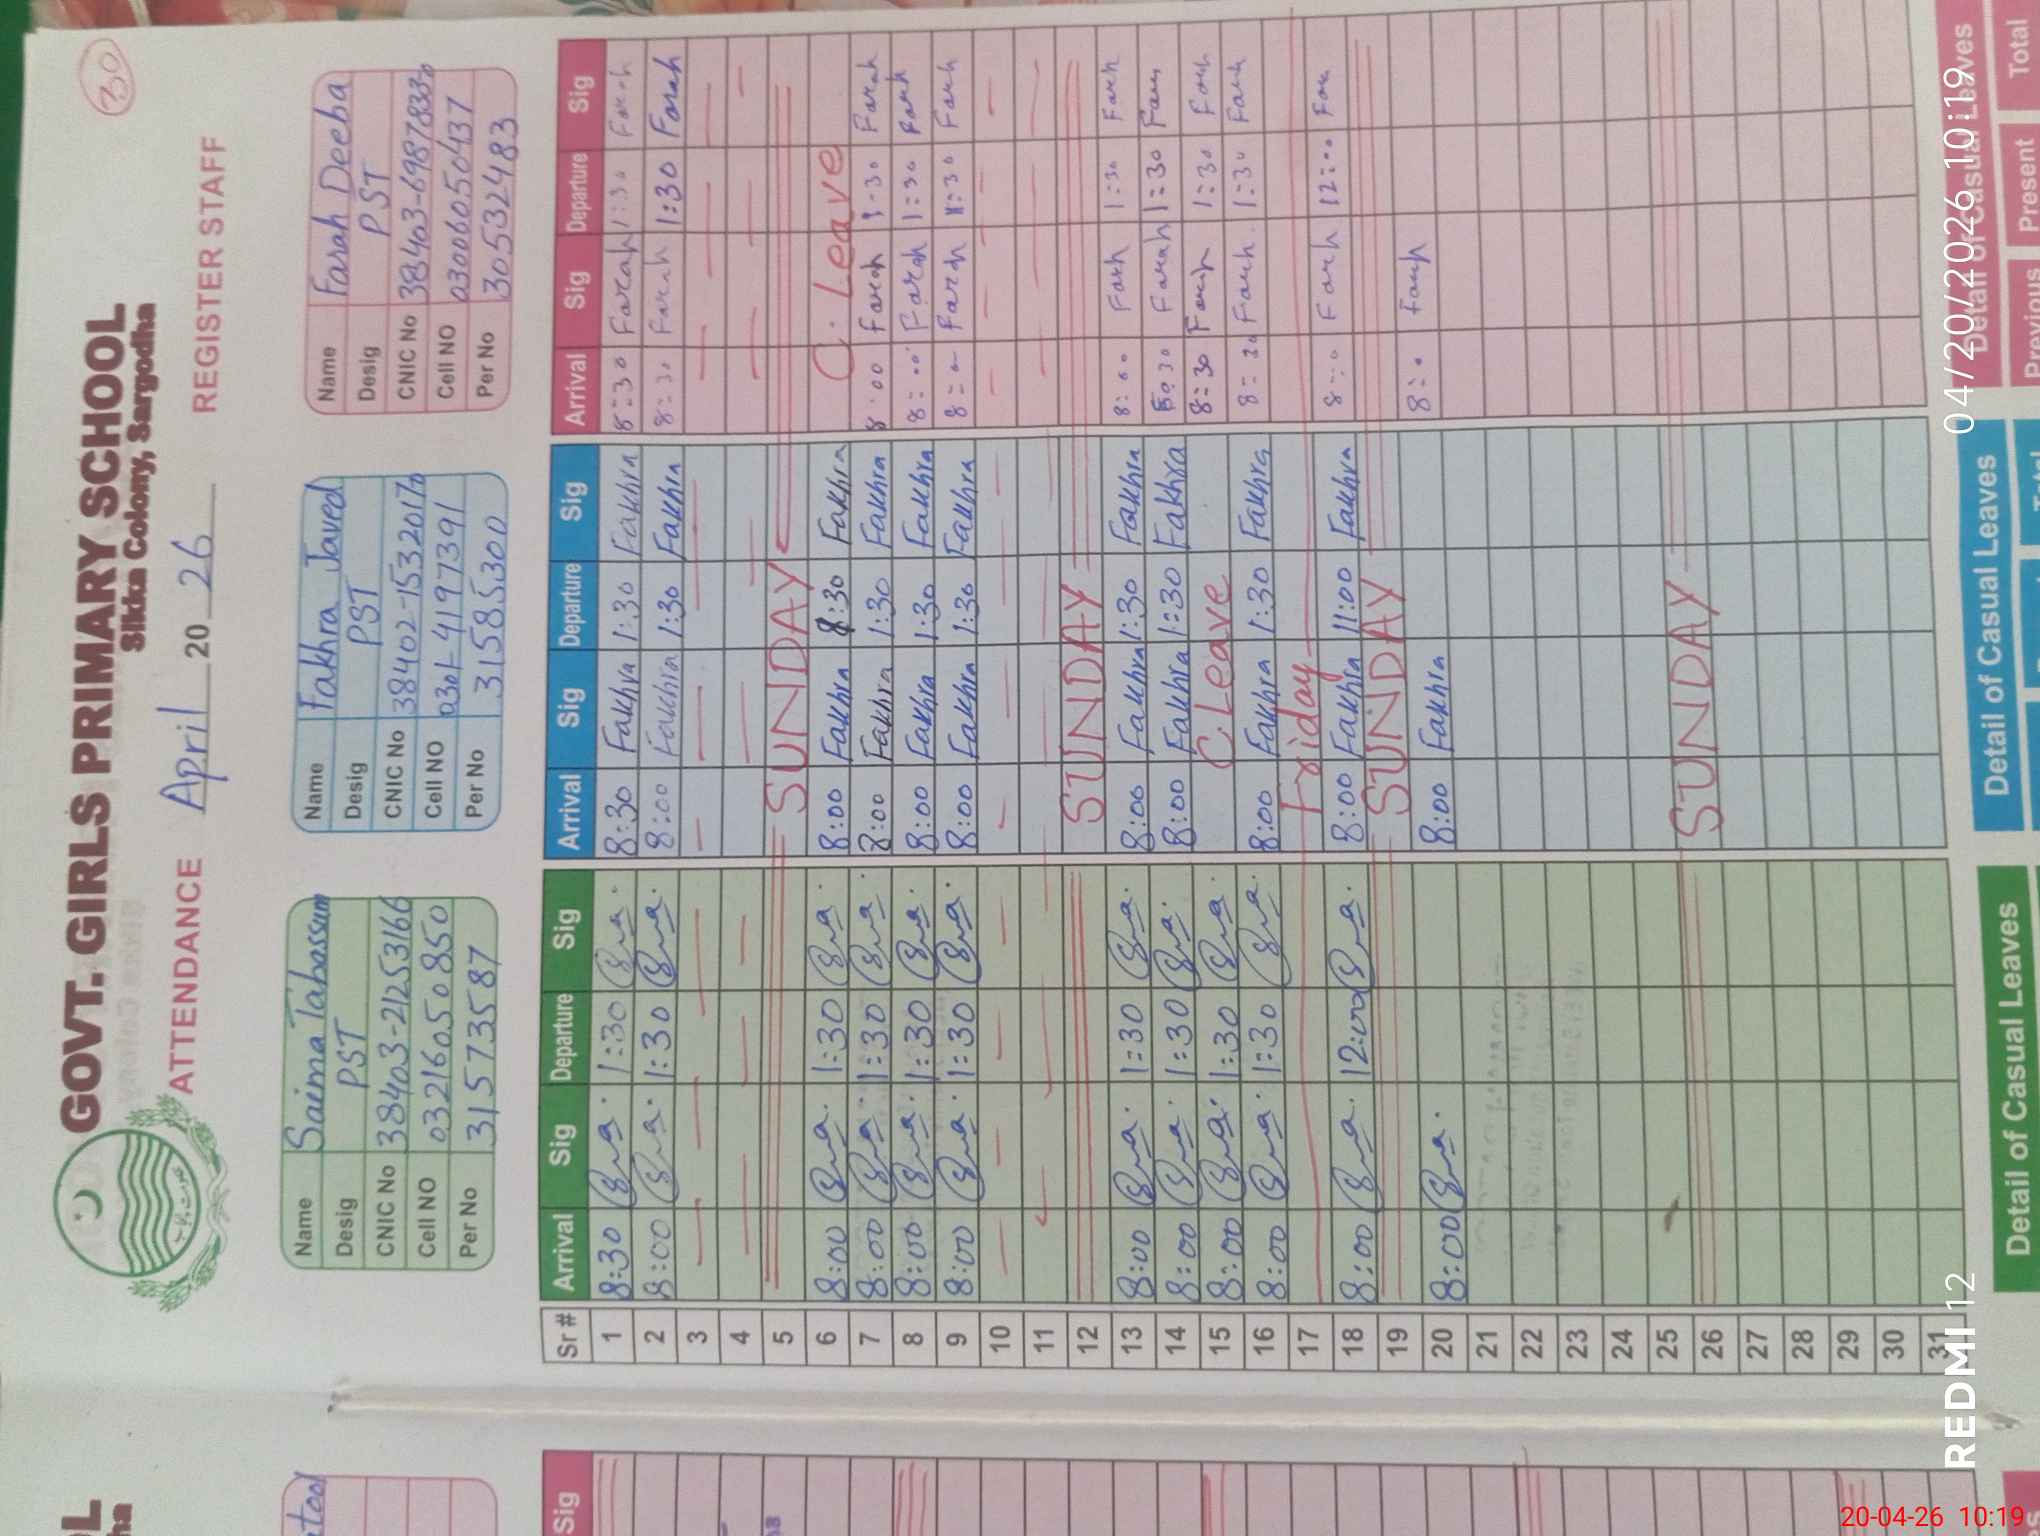 30
GOVT. GIRLS PRIMARY SCHOOL
Sikka Colony, Sargodha
ATTENDANCE April 20 26 REGISTER STAFF
Name Saima Tabassum
Desig PST
CNIC No 38403-21253166
Cell NO 03216050850
Per No 31573587
Name Fakhra Javed
Desig PST
CNIC No 38402-1532017
Cell NO 0301-4197391
Per No 31585300
Name Farah Deeba
Desig PST
CNIC No 38403-6987833
Cell NO 03006050437
Per No 30532483
Sr # Arrival Sig Departure Sig Arrival Sig Departure Sig Arrival Sig Departure Sig
1 8:30 1:30 8:30 Fakhra 1:30 Fakhra 8:30 Farah 1:30 Farah
2 8:00 1:30 8:00 Fakhra 1:30 Fakhra 8:30 Farah 1:30 Farah
3
4
5 SUNDAY
6 8:00 1:30 8:00 Fakhra :30 Fakhra C. Leave
7 8:00 1:30 8:00 Fakhra 1:30 Fakhra 8:00 Farah 1:30 Farah
8 8:00 1:30 8:00 Fakhra 1:30 Fakhra 8:00 Farah 1:30 Farah
9 8:00 1:30 8:00 Fakhra 1:30 Fakhra 8:00 Farah :30 Farah
10
11
12 SUNDAY
13 8:00 1:30 8:00 Fakhra 1:30 Fakhra 8:00 Farah 1:30 Farah
14 8:00 1:30 8:00 Fakhra 1:30 Fakhra Farah 1:30
15 8:00 1:30 C Leave 8:30 Farah 1:30 Farah
16 8:00 1:30 8:00 Fakhra 1:30 Fakhra 8:30 Farah 1:30 Farah
17 Friday
18 8:00 12:00 8:00 Fakhra 11:00 Fakhra 8:00 Farah 12:00
19 SUNDAY
20 8:00 8:00 Fakhra 8:0 Farah
21
22
23
24
25
26 SUNDAY
27
28
29
30
31
Detail of Casual Leaves Detail of Casual Leaves Detail of Casual Leaves
Previous Present Total
Sig
REDMI 12
04/20/2026 10:19
20-04-26 10:19